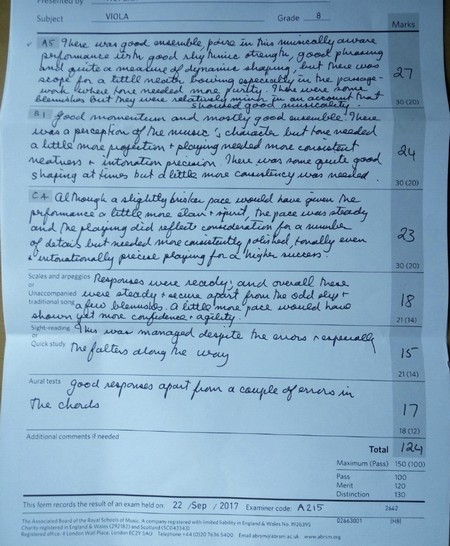 Presented by
Subject VIOLA Grade 8
Marks
A5 There was good ensemble poise in this musically aware
performance with good rhythmic strength, good phrasing
and quite a measure of dynamic shaping, but there was
scope for a little neater bowing especially in the passage-
work where tone needed more purity. There were some
blemishes but they were relatively minor in an account that
showed good musicality.
27
30 (20)
B1 Good momentum and mostly good ensemble. There
was a perception of the music's character but tone needed
a little more projection + playing needed more consistent
neatness + intonation precision. There was some quite good
shaping at times but a little more consistency was needed.
24
30 (20)
C4 Although a slightly brisker pace would have given the
performance a little more élan + spirit, the pace was steady
and the playing did reflect consideration for a number
of details but needed more consistently polished, tonally even
+ intonationally precise playing for a higher success.
23
30 (20)
Scales and arpeggios
or
Unaccompanied
traditional song
Responses were ready, and overall these
were steady + secure apart from the odd slip +
a few blemishes. A little more pace would have
shown yet more confidence + agility.
18
21 (14)
Sight-reading
or
Quick study
This was managed despite the errors + especially
the falters along the way
15
21 (14)
Aural tests
Good responses apart from a couple of errors in
the chords
17
18 (12)
Additional comments if needed
Total 124
Maximum (Pass) 150 (100)
Pass 100
Merit 120
Distinction 130
This form records the result of an exam held on: 22 / Sep / 2017 Examiner code: A215
2442
The Associated Board of the Royal Schools of Music. A company registered with limited liability in England & Wales No.
Charity registered in England & Wales (292182) and Scotland (SC043343)
02663001 (HB)
Registered office: 4 London Wall Place, London EC2Y 5AU Telephone +44 (0)20 7636 5400 Email abrsm@abrsm.ac.uk www.abrsm.org